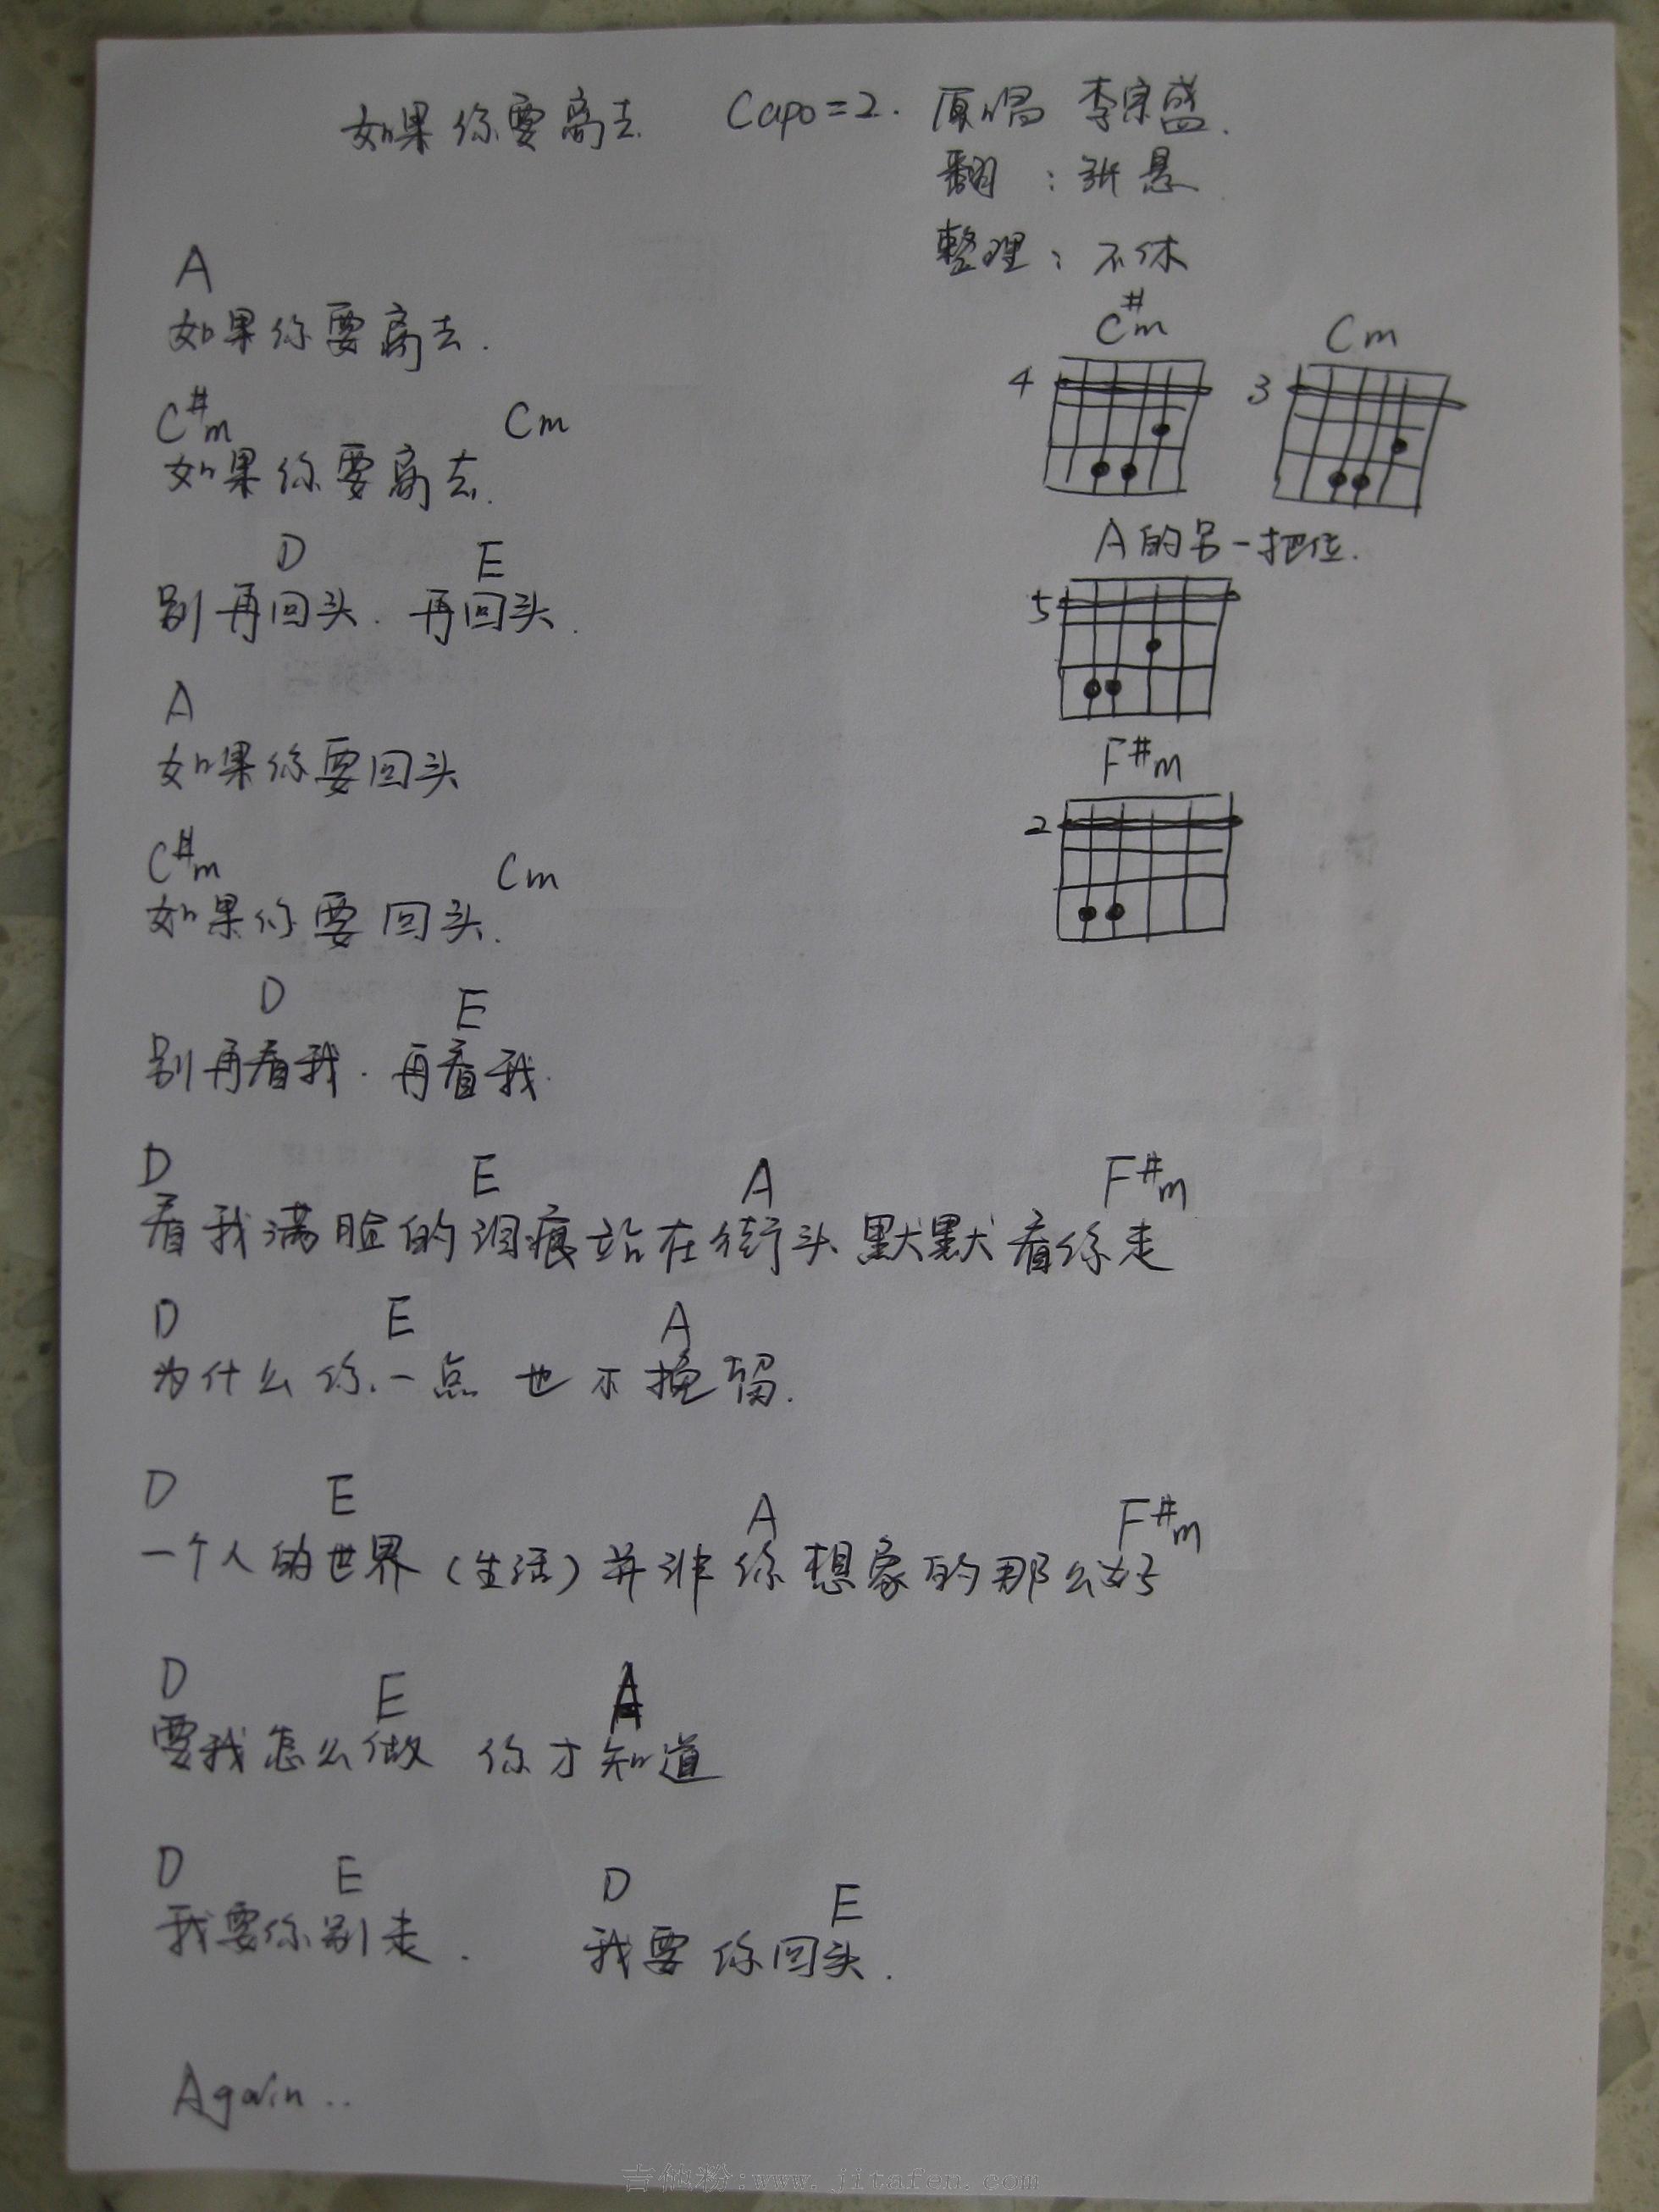 如果你要离去 Capo=2. 原唱 李宗盛.
翻：张悬
整理：不休
C#m Cm
4 3
A的另一把位.
5
F#m
2
A
如果你要离去.
C#m Cm
如果你要离去.
D E
别再回头. 再回头.
A
如果你要回头
C#m Cm
如果你要回头.
D E
别再看我. 再看我.
D E A F#m
看我满脸的泪痕站在街头默默看你走
D E A
为什么你一点也不挽留.
D E A F#m
一个人的世界（生活）并非你想象的那么好
D E A
要我怎么做 你才知道
D E D E
我要你别走. 我要你回头.
Again..
吉他粉:www.jitafen.com